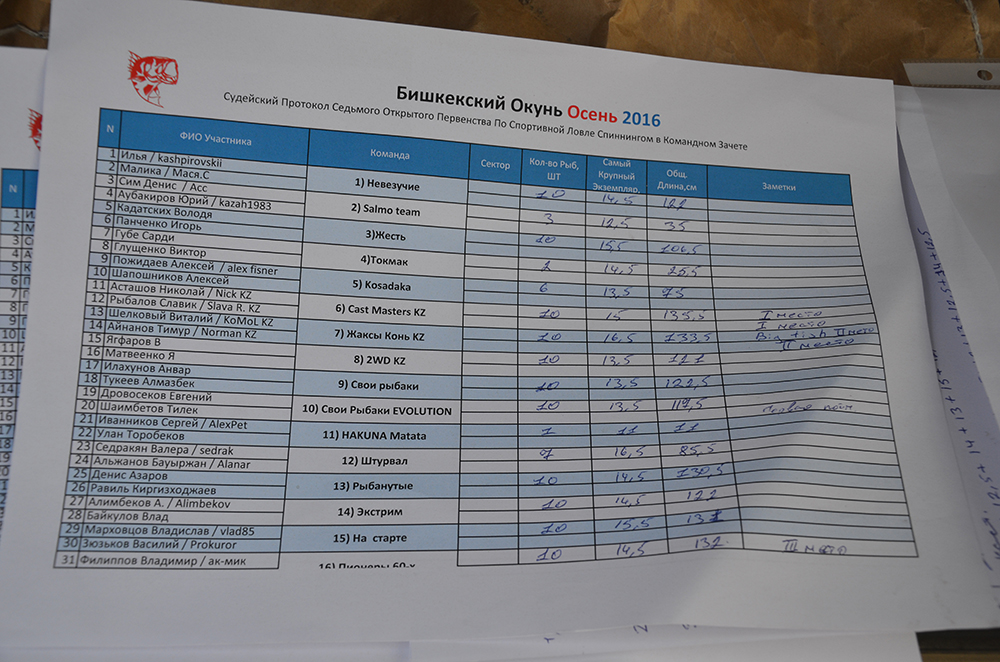 Бишкекский Окунь Осень 2016
Судейский Протокол Седьмого Открытого Первенства По Спортивной Ловле Спиннингом в Командном Зачете
N ФИО Участника Команда Сектор Кол-во Рыб, ШТ Самый Крупный Экземпляр, Общ. Длина,см Заметки
1 Илья / kashpirovskii
2 Малика / Мася.С
1) Невезучие 10 14,5 122
3 Сим Денис / Асс
4 Аубакиров Юрий / kazah1983
2) Salmo team 3 12,5 35
5 Кадатских Володя
6 Панченко Игорь
3)Жесть 10 15,5 106,5
7 Губе Сарди
8 Глущенко Виктор
4)Токмак 2 14,5 25,5
9 Пожидаев Алексей / alex fisner
10 Шапошников Алексей
5) Kosadaka 6 13,5 75
11 Асташов Николай / Nick KZ
12 Рыбалов Славик / Slava R. KZ
6) Cast Masters KZ 10 15 135,5 I место
I место
13 Шелковый Виталий / KoMoL KZ
14 Айнанов Тимур / Norman KZ
7) Жаксы Конь KZ 10 16,5 133,5 Big fish II место
II место
15 Ягфаров В
16 Матвеенко Я
8) 2WD KZ 10 13,5 121
17 Илахунов Анвар
18 Тукеев Алмазбек
9) Свои рыбаки 10 13,5 122,5
19 Дровосеков Евгений
20 Шаимбетов Тилек
10) Свои Рыбаки EVOLUTION 10 13,5 117,5
21 Иванников Сергей / AlexPet
22 Улан Торобеков
11) HAKUNA Matata 7 11 71
23 Седракян Валера / sedrak
24 Альжанов Бауыржан / Alanar
12) Штурвал 7 16,5 85,5
25 Денис Азаров
26 Равиль Киргизходжаев
13) Рыбанутые 10 14,5 130,5
27 Алимбеков А. / Alimbekov
28 Байкулов Влад
14) Экстрим 10 14,5 122
29 Марховцов Владислав / vlad85
30 Зюзьков Василий / Prokuror
15) На старте 10 15,5 131
31 Филиппов Владимир / ак-мик
16) Пионеры 60-х 10 14,5 132 III место